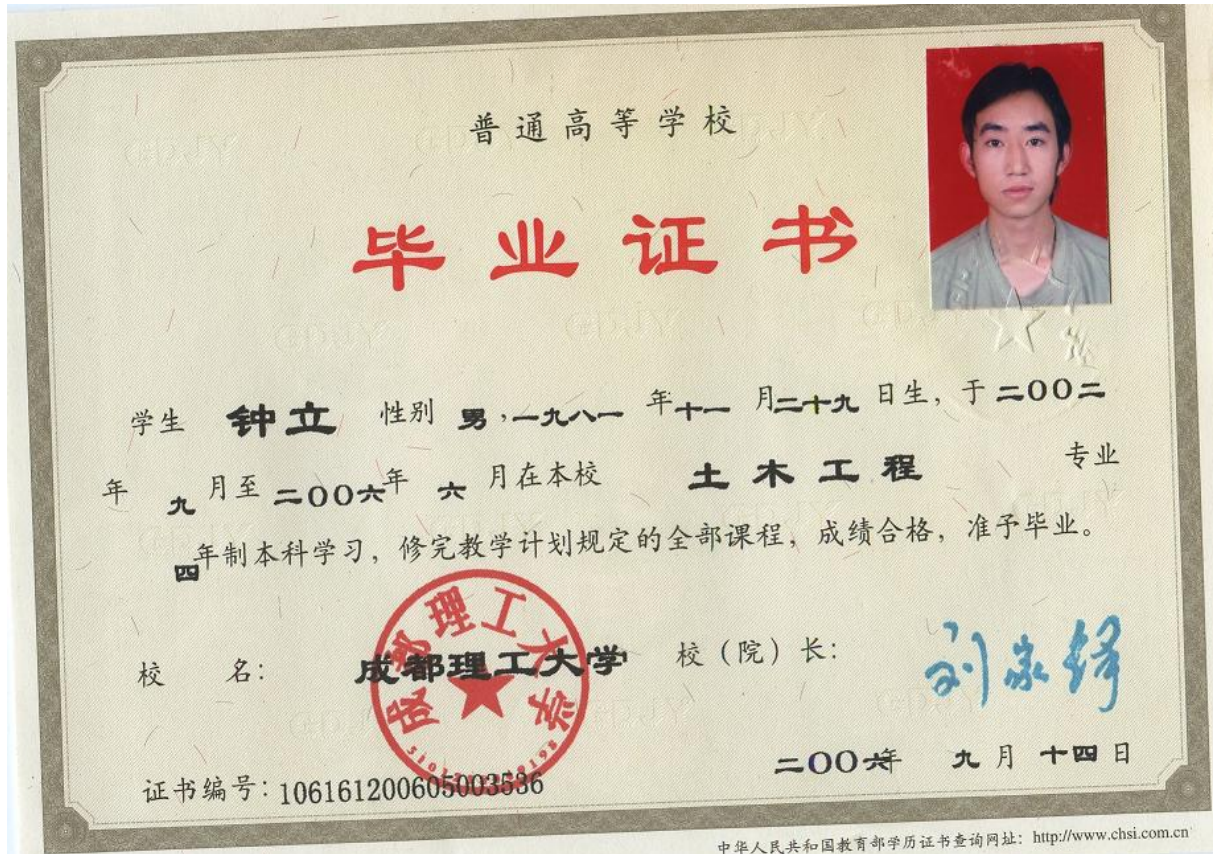 普通高等学校
毕业证书
学生 钟立 性别 男，一九八一 年十一 月二十九 日生，于 二00二
年 九 月至 二00六年 六 月在本校 土木工程 专业
四年制本科学习，修完教学计划规定的全部课程，成绩合格，准予毕业。
校 名： 成都理工大学 校（院）长： 刘家铎
成都理工大学
二00六年 九 月 十四 日
证书编号：106161200605003536
中华人民共和国教育部学历证书查询网址：http://www.chsi.com.cn